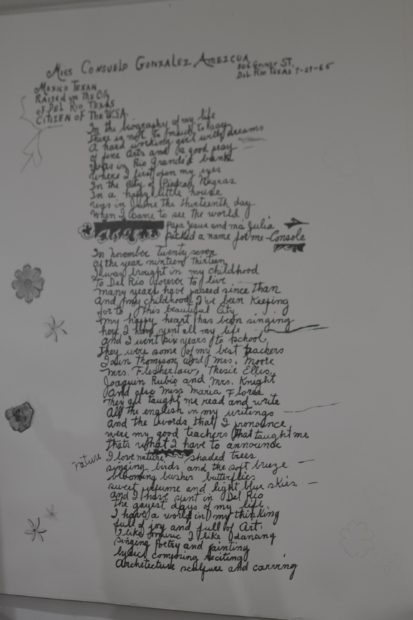 Miss Consuelo Gonzalez Amezcua
St.
Del Rio Texas 7-27-65
Mexico Texan
Raised in the City
of Del Rio, Texas
Citizen of the U.S.A.
In the biography of my life
There is not to much to say
A hard working girl with dreams
of fine Arts and a good
in Rio Grande's bank
where I first open my eyes
In the city of Piedras Negras
In a happy little house
in June the thirteenth day
when I came to see the world
Papa Jesus and ma Julia
picked a name for me-Console
In November twenty seven
of the year ninteen Thirteen
I was brought in my childhood
to Del Rio forever to live
many years have passed since than
And my childhood I've been keeping
for to this beautiful City
my happy heart has been singing
here I have spent all my life
and I went six years to school
they were some of my best teachers
Thompson, and Mrs. Moore
Mrs. Ellis
Joaquin Rubio and Mrs. Knight
and also Miss Maria Flores
They all taught me read and write
All the english in my writings
and the words that I pronounce
were my good teachers that taught me
thats what I have to announce
nature I love nature shaded trees
singing birds and the soft breeze
blooming bushes butterflies
sweet perfume and light blue skies
and I have spent in Del Rio
The gayest days of my life.
I have a world in my thinking
full of joy and full of Art.
I like music I like dancing
Singing Poetry and painting
lyrics composing reciting
Architecture sculpture and carving